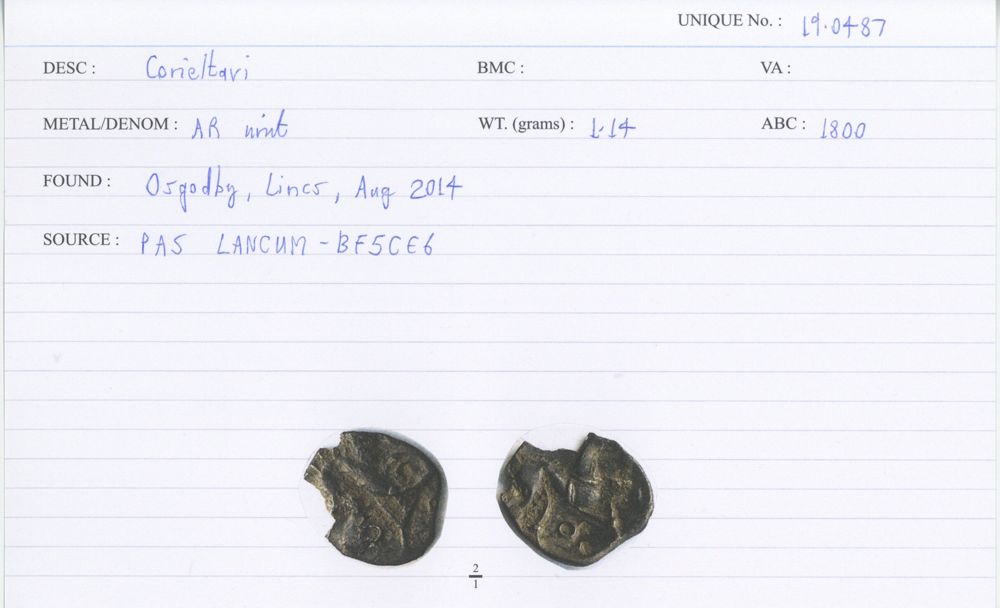 UNIQUE No. : 19.0487
DESC : Corieltavi BMC : VA :
METAL/DENOM : AR unit WT. (grams) : 1.14 ABC : 1800
FOUND : Osgodby, Lincs, Aug 2014
SOURCE : PAS LANCUM-BF5CE6
2
1